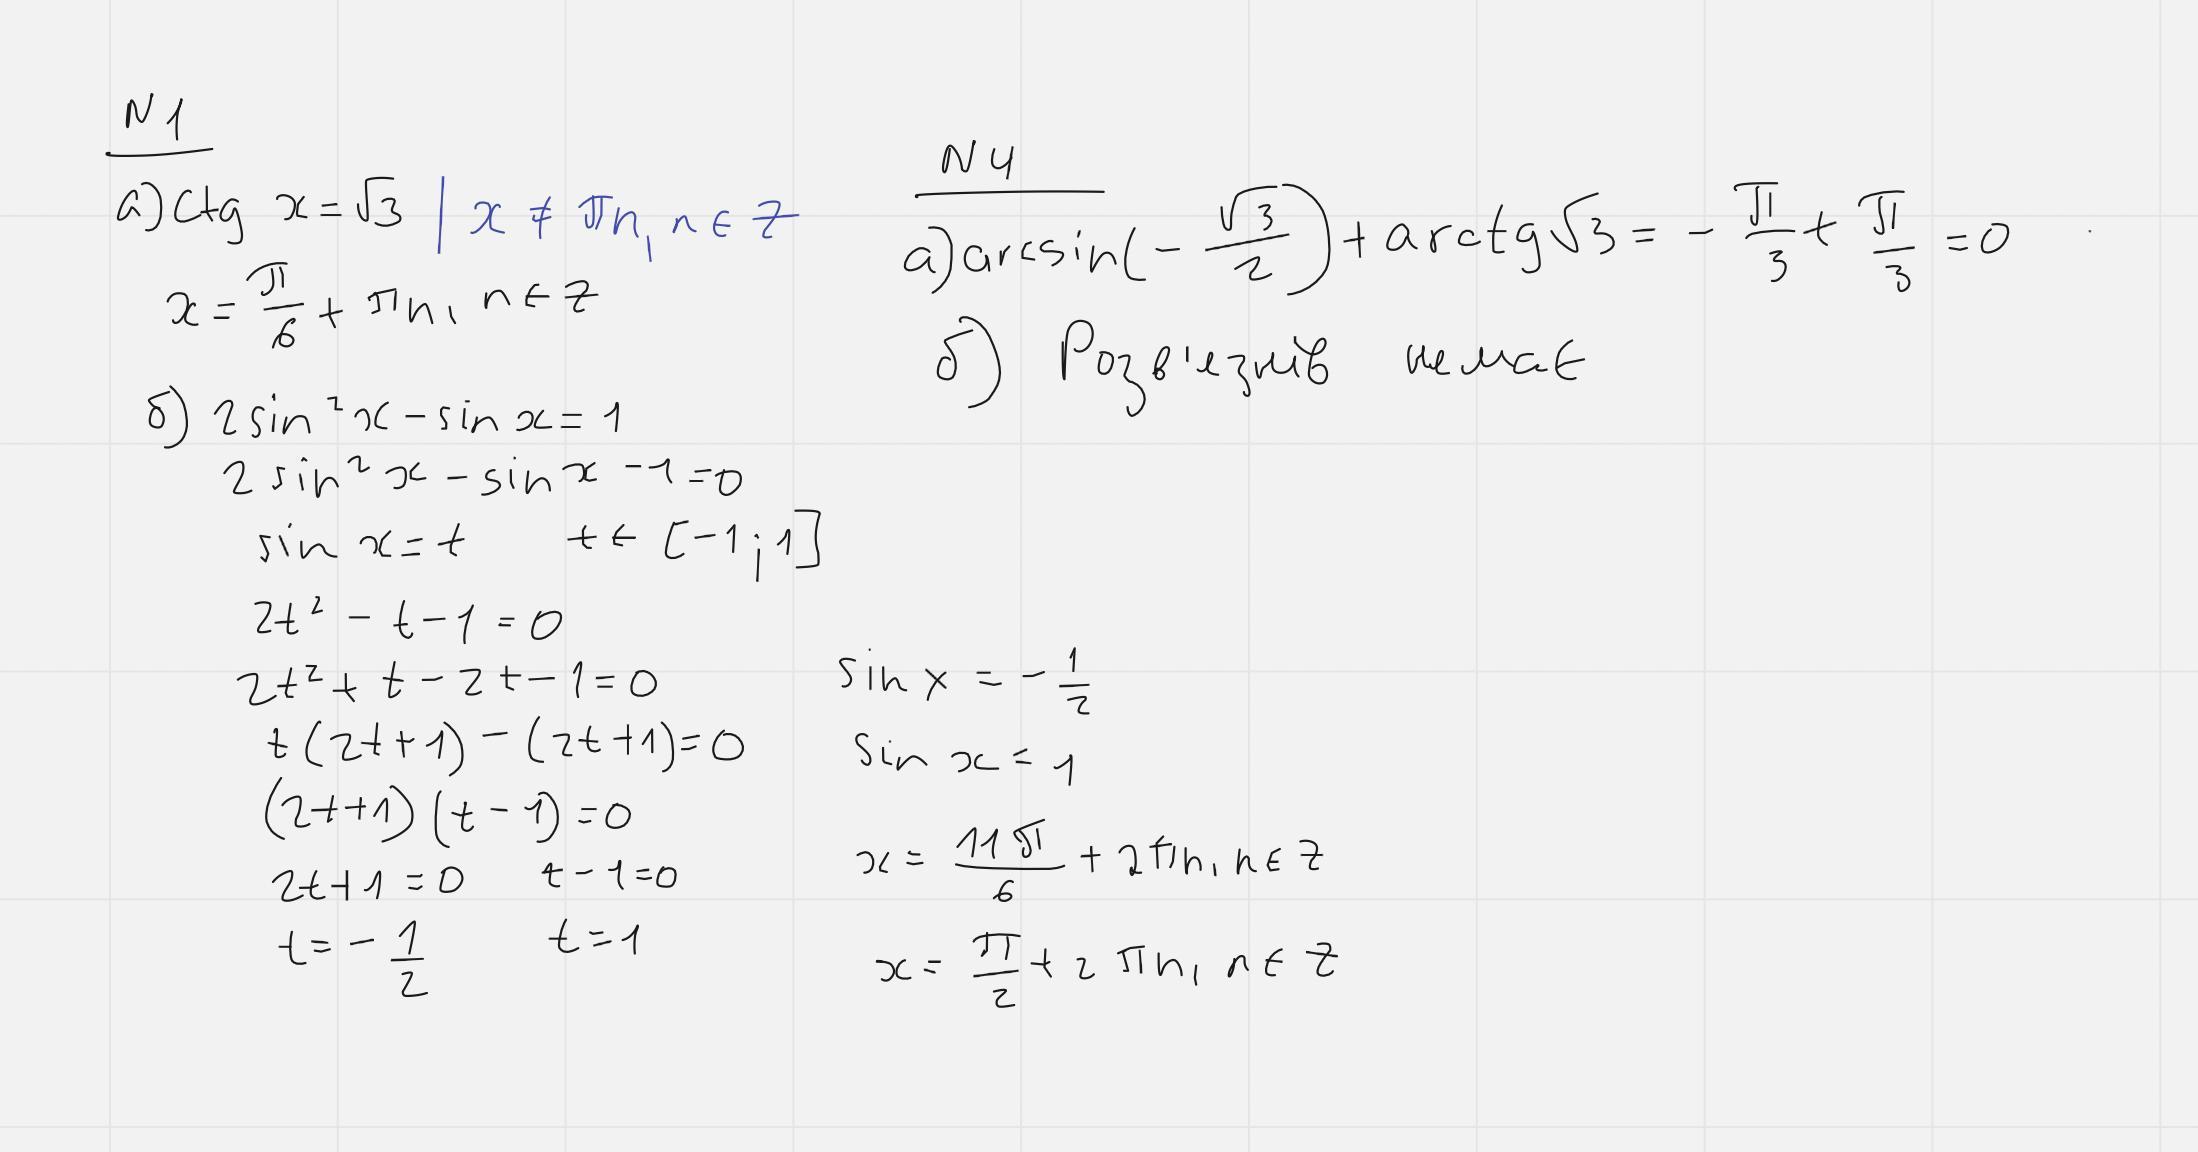 N1
а) ctg x = √3 | x ≠ πn, n ∈ Z
x = π/6 + πn, n ∈ Z
б) 2sin²x - sin x = 1
2 sin²x - sin x - 1 = 0
sin x = t t ∈ [-1; 1]
2t² - t - 1 = 0
2t² + t - 2t - 1 = 0
t(2t+1) - (2t+1) = 0
(2t+1)(t-1) = 0
2t+1 = 0 t-1=0
t = -1/2 t = 1
sin x = -1/2
sin x = 1
x = 11π/6 + 2πn, n ∈ Z
x = π/2 + 2πn, n ∈ Z
N4
а) arcsin(-√3/2) + arctg√3 = -π/3 + π/3 = 0
б) Розв'язків немає